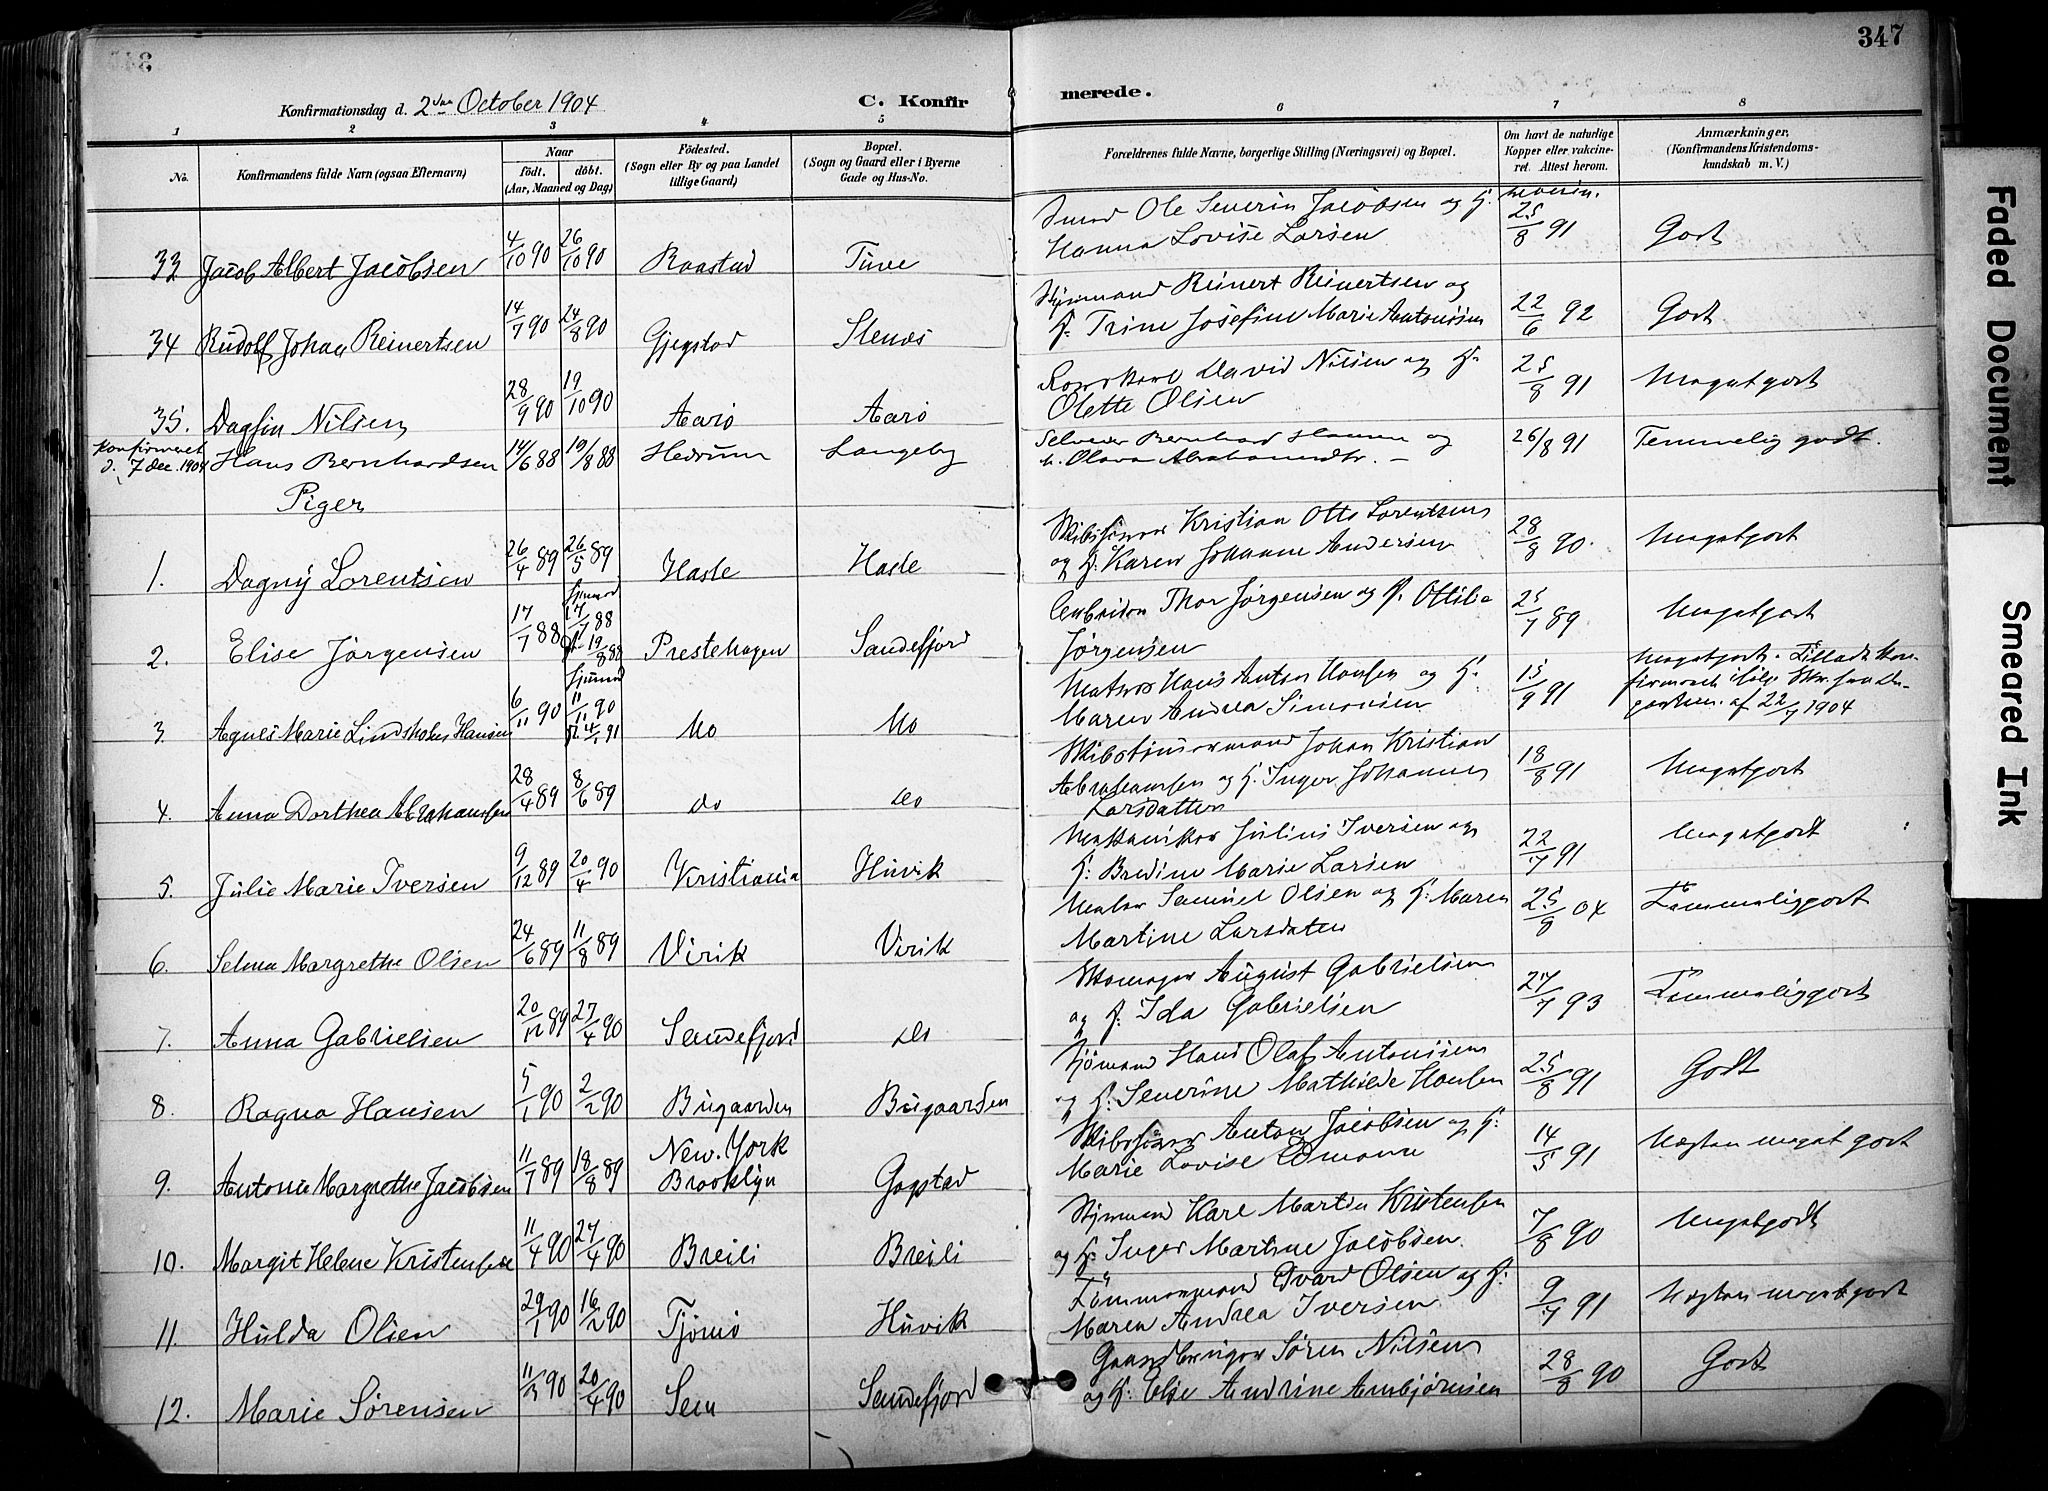 347
Konfirmationsdag d. 2den October 1904
C. Konfirmerede.
1 2 3 4 5 6 7 8
No. Konfirmandens fulde Navn (ogsaa Efternavn) Naar født. døbt. (Aar, Maaned og Dag) Fødested. (Sogn eller By og paa Landet tillige Gaard) Bopæl. (Sogn og Gaard eller i Byerne Gade og Hus-No. Forældrenes fulde Navne, borgerlige Stilling (Næringsvei) og Bopæl. Om havt de naturlige Kopper eller vakcineret. Attest herom. Anmærkninger. (Konfirmandens Kristendomskundskab m. V.)
33 Jacob Albert Jacobsen 4/10 90 26/10 90 Raastad Tuve Smed Ole Severin Jacobsen og H. Hanna Lovise Larsen 25/8 91 Godt
34 Rudolf Johan Reinertsen 14/7 90 24/8 90 Gjegstad Stenes Styrmand Reinert Reinertsen og H. Trine Josefine Marie Antonisen 22/6 92 Godt
35. Dagfin Nilsen 28/9 90 19/10 90 Aarø Aarø David Nilsen og H. Olette Olsen 25/8 91 Megetgodt
Konfirmeret d. 7 Dec. 1904 Hans Bernhardsen 14/6 88 19/8 88 Hedrum Langeby Selveier Bernhard Hansen og h. Olava Abrahamsdtr. 26/8 91 Temmelig godt.
Piger
1. Dagny Lorentsen 26/4 89 26/5 89 Hasle Hasle Kristian Otto Lorentsen og H. Karen Johanne Andersen 28/8 90. Megetgodt
2. Elise Jørgensen 17/7 88 hjemmed 17/7 88 19/8 88 Prestehagen Sandefjord Thor Jørgensen og H. Ottilia Jørgensen 25/7 89 Megetgodt
3. Agnes Marie Lindsholm Hansen 6/11 90 hjemmed 11/11 90 4/1 91 Mo Mo Matros Hans Anton Hansen og H. Maren Andrea Simonsen 15/9 91 Megetgodt. Tilladt konfirmeret ifølge Skr. fra De- af 22/7 1904
4. Anna Dorthea Abrahamsen 28/4 89 8/6 89 do do Skibstømmermand Johan Kristian Abrahamsen og H. Inger Johanne Larsdatter 18/8 91 Megetgodt
5. Julie Marie Iversen 9/12 89 20/4 90 Kristiania Huvik Mekaniker Julius Iversen og H. Bredine Marie Larsen 22/7 91 Megetgodt
6. Selma Margrethe Olsen 24/6 89 11/8 89 Virik Virik Maler Samuel Olsen og H. Maren Martine Larsdaten 25/8 04 Temmeliggodt
7. Anna Gabrielsen 20/12 89 27/4 90 Sandefjord do Skomager August Gabrielsen og H. Ida Gabrielsen 27/7 93 Temmeliggodt
8. Ragna Hansen 5/1 90 2/2 90 Bugaarden Bugaarden Sjømand Hans Olaf Antonisen og H. Severine Mathilde Hansen 25/8 91 Godt
9. Antonie Margrethe Jacobsen 11/7 89 18/8 89 New. York Brooklyn Gogstad Anton Jacobsen og H. Marie Lovise Edmann 14/5 91 Næsten meget godt
10. Margit Helene Kristensen 11/4 90 27/4 90 Breili Breili Styrmand Karl Martin Kristensen og H. Inger Martine Jacobsen. 7/8 90 Megetgodt
11. Hulda Olsen 29/1 90 16/2 90 Tjømø Huvik Tømmermand Edvard Olsen og H. Maren Andrea Iversen 9/7 91 Næsten megetgodt
12. Marie Sørensen 11/3 90 20/4 90 Sem Sandefjord Gaardbruger Søren Nilsen og H. Else Andrine Ambjørnsen 28/8 90 Godt
Faded Document
Smeared Ink